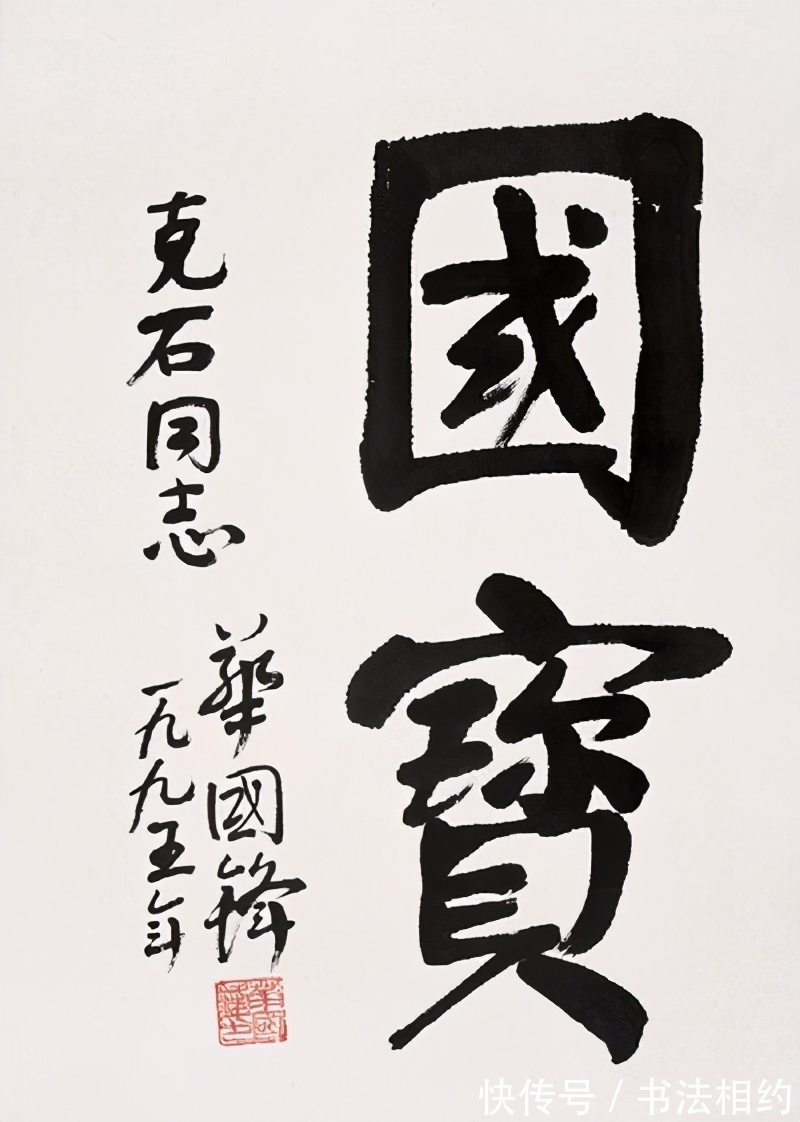 國寶
克石同志
華國鋒
一九九五年
快传号/书法相约